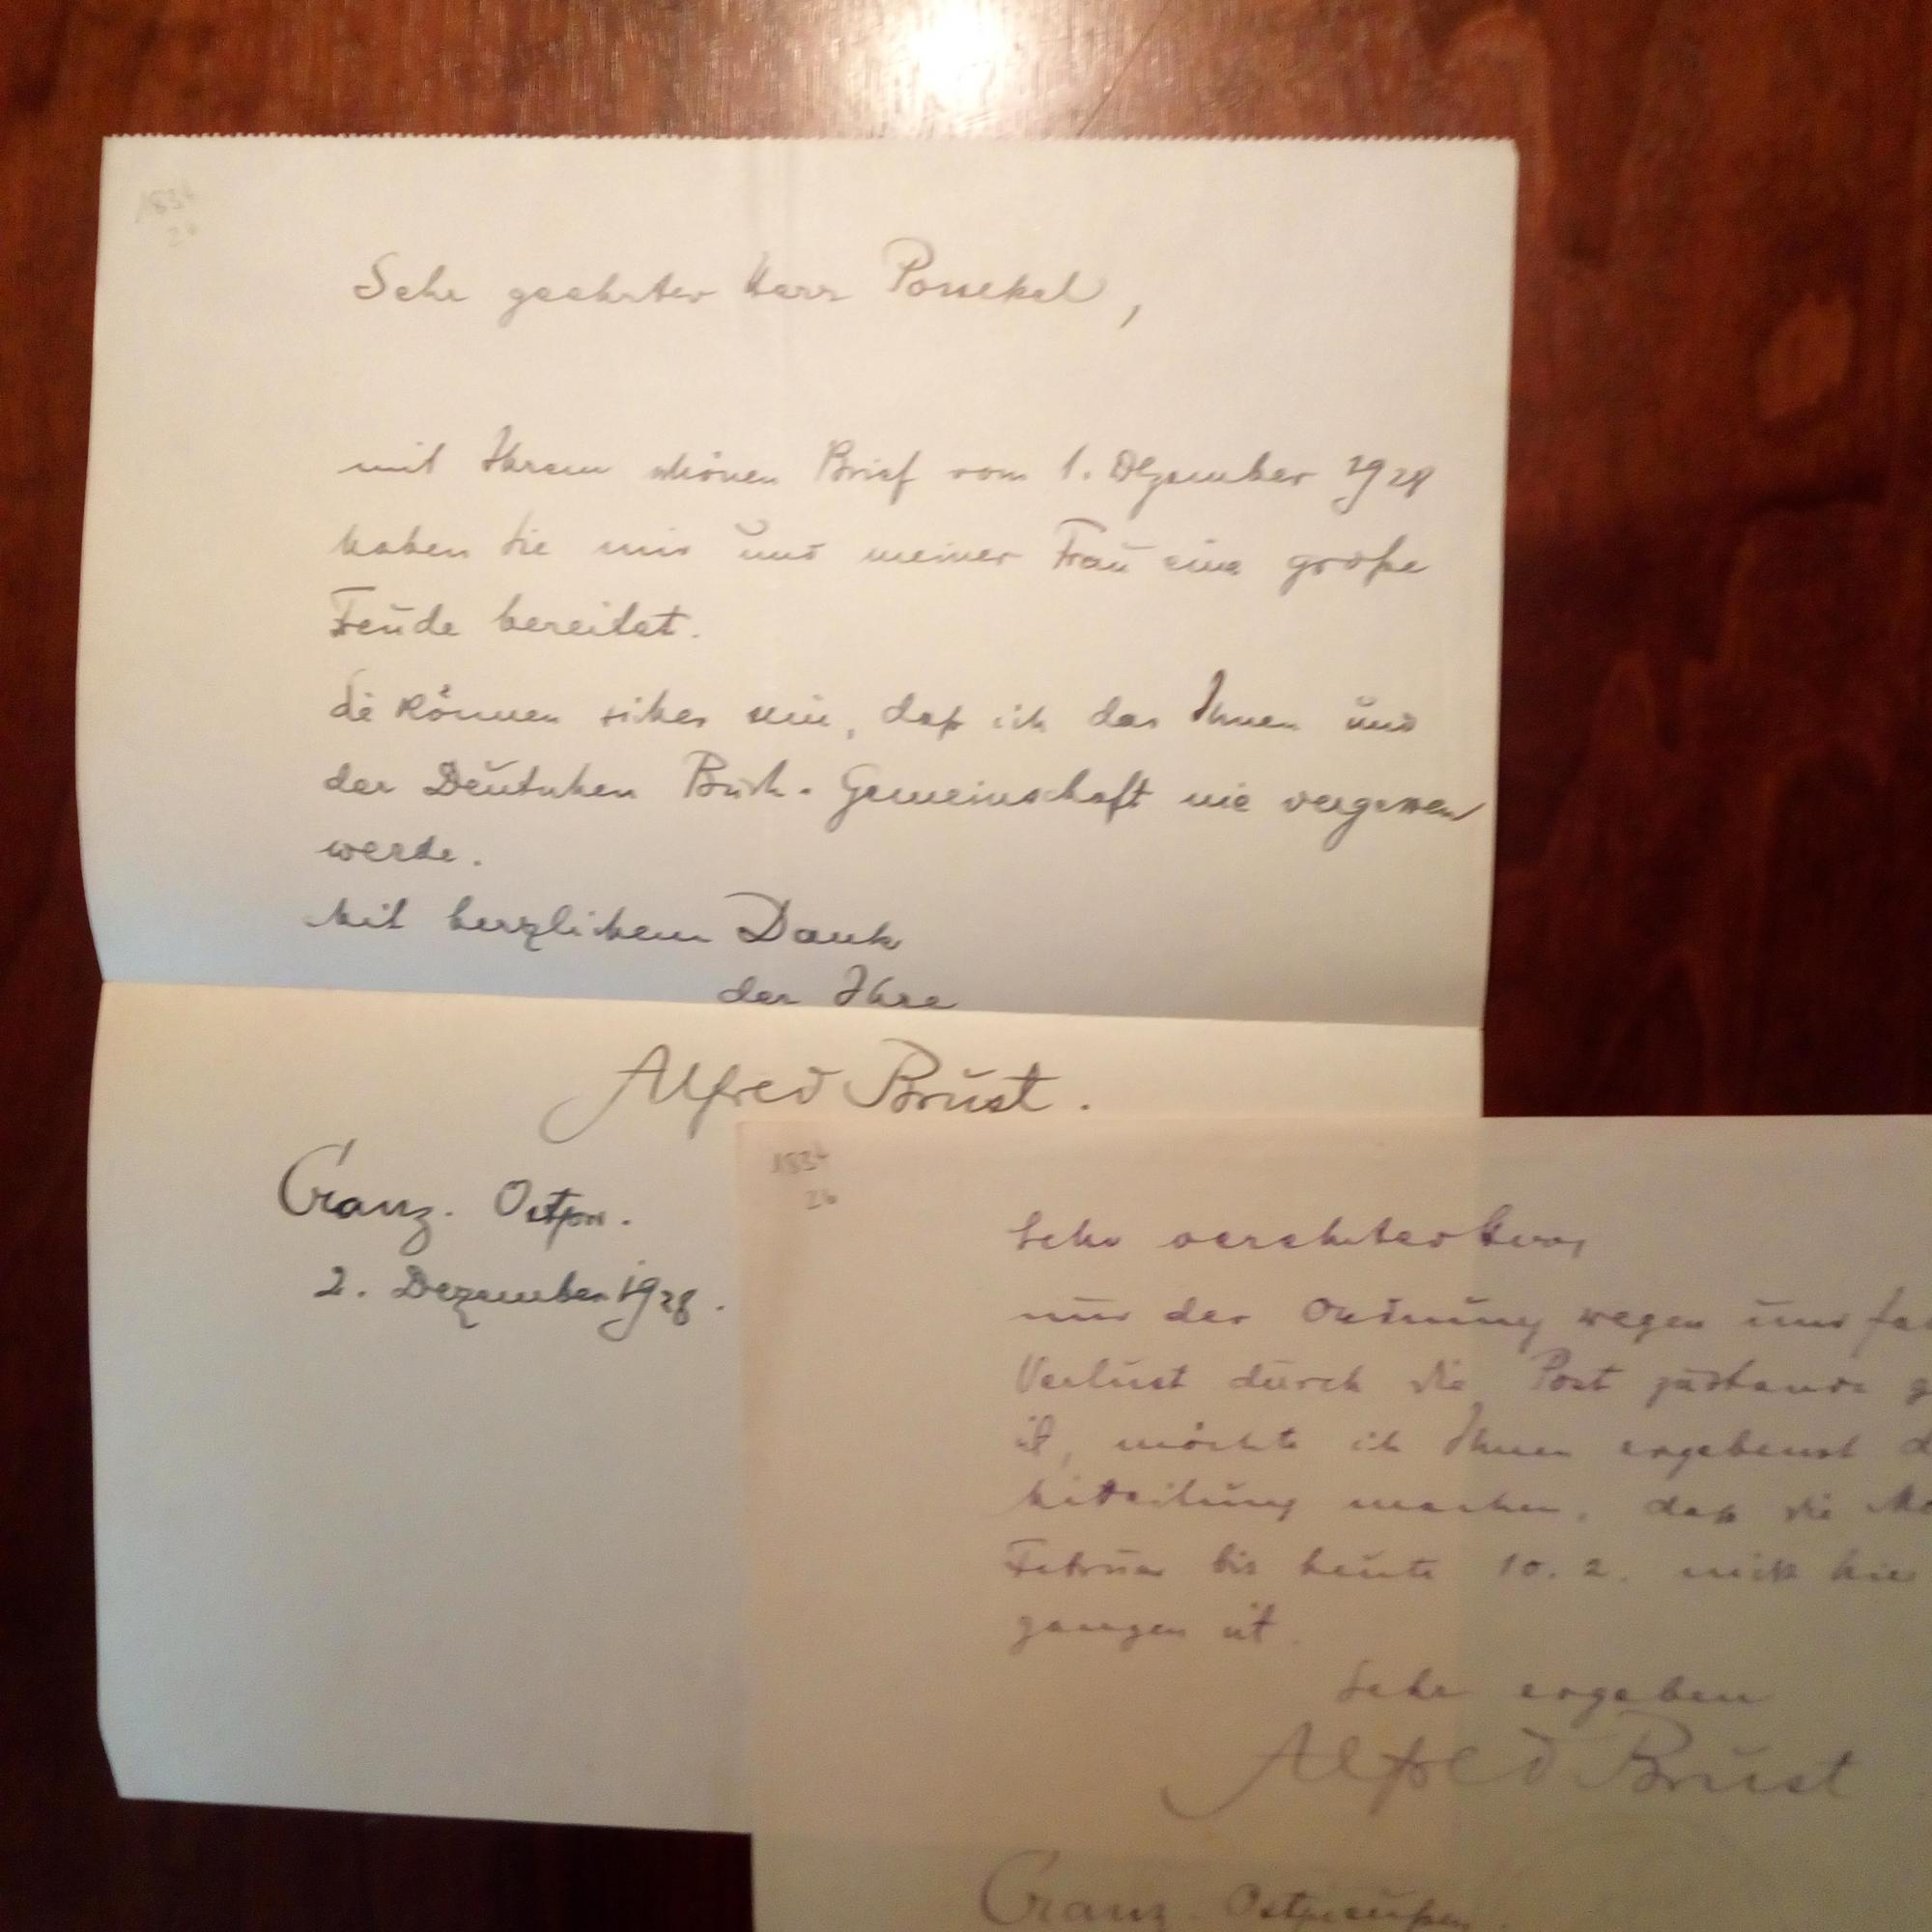 183
2
Sehr geehrter Herr Possekel,
mit Ihrem schönen Brief vom 1. Dezember 1928
haben Sie mir und meiner Frau eine große
Freude bereitet.
Sie können sicher sein, daß ich das Ihnen und
der Deutschen Buch-Gemeinschaft nie vergessen
werde.
Mit herzlichem Dank
der Ihre
Alfred Brust.
Cranz. Ostpr.
2. Dezember 1928.
183
26
Sehr verehrter Herr,
nur der Ordnung wegen und fa
Verlust durch die Post zustande g
ist, möchte ich Ihnen ergebenst d
Mitteilung machen, daß die
Februar bis heute 10. 2. nicht hier
gangen ist.
Sehr ergeben
Alfred Brust
Cranz - Ostpreußen.